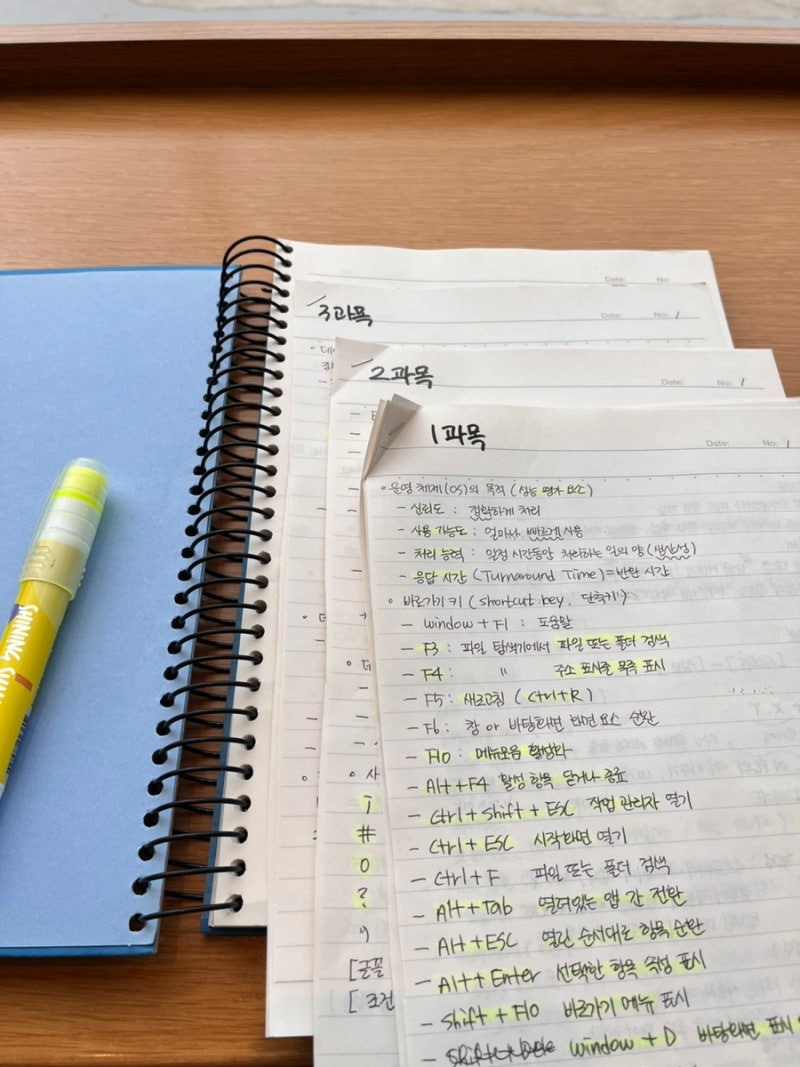 Date: No:
3과목
Date: No: 1
2과목
Date: No: 1
사
T
#
0
?
9
[글꼴
[조건
1과목
Date: No: 1
◦ 운영체제(OS)의 목적 (성능 평가 요소)
- 신뢰도 : 정확하게 처리
- 사용 가능도 : 얼마나 빠르게 사용
- 처리 능력 : 일정 시간동안 처리하는 일의 양 (생산성)
- 응답 시간 (Turnaround Time) = 반환 시간
◦ 바로가기 키 (shortcut key, 단축키)
- window + F1 : 도움말
- F3 : 파일 탐색기에서 파일 또는 폴더 검색
- F4 : " 주소 표시줄 목록 표시
- F5 : 새로고침 (Ctrl+R)
- F6 : 창 or 바탕화면 화면 요소 순환
- F10 : 메뉴모음 활성화
- Alt + F4 활성 항목 닫거나 종료
- Ctrl + Shift + ESC 작업 관리자 열기
- Ctrl + ESC 시작화면 열기
- Ctrl + F 파일 또는 폴더 검색
- Alt + Tab 열려있는 앱 간 전환
- Alt + ESC 열린 순서대로 항목 순환
- Alt + Enter 선택한 항목 속성 표시
- Shift + F10 바로가기 메뉴 표시
- window + D 바탕화면 표시
SHINING